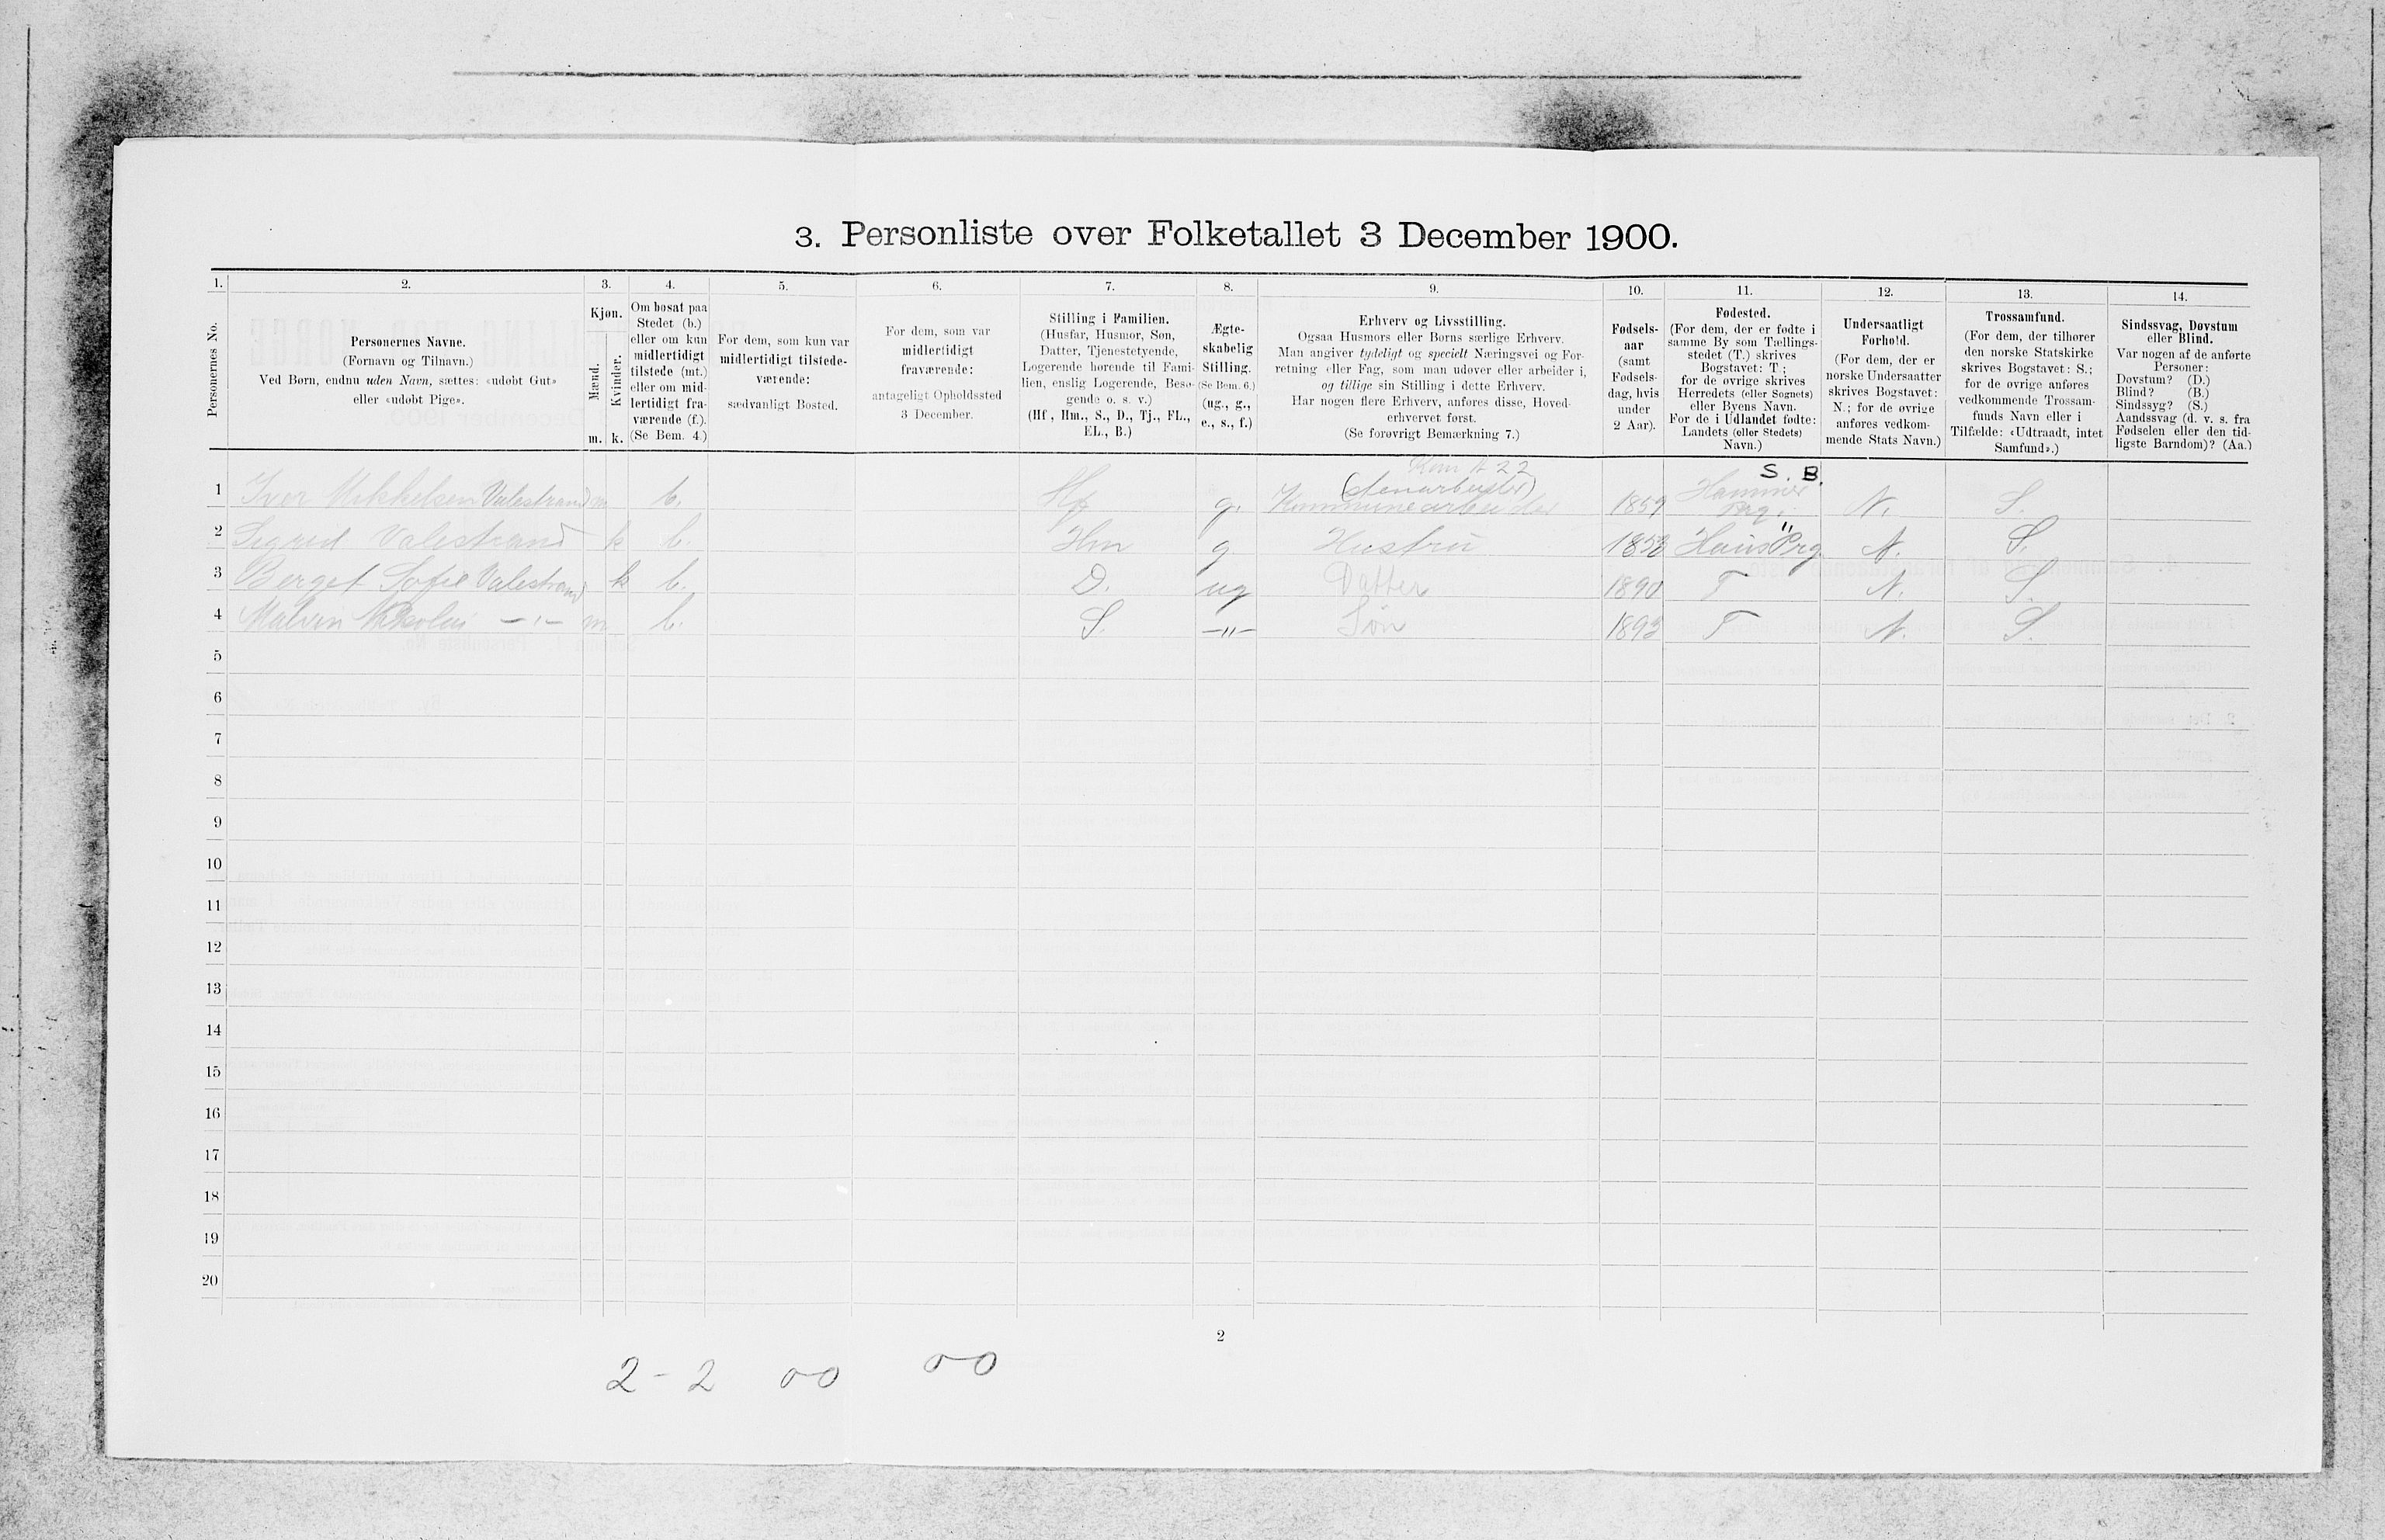 3. Personliste over Folketallet 3 December 1900.
1. 2. 3. 4. 5. 6. 7. 8. 9. 10. 11. 12. 13. 14.
Personernes No.
Personernes Navne.
(Fornavn og Tilnavn.)
Ved Børn, endnu uden Navn, sættes: «udøbt Gut»
eller «udøbt Pige».
Kjøn.
Mænd.
Kvinder.
m. k.
Om bosat paa
Stedet (b.)
eller om kun
midlertidigt
tilstede (mt.)
eller om mid-
lertidigt fra-
værende (f.).
(Se Bem. 4.)
For dem, som kun var
midlertidigt tilstede-
værende:
sædvanligt Bosted.
For dem, som var
midlertidigt
fraværende:
antageligt Opholdssted
3 December.
Stilling i Familien.
(Husfar, Husmor, Søn,
Datter, Tjenestetyende,
Logerende hørende til Fami-
lien, enslig Logerende, Besø-
gende o. s. v.)
(Hf., Hm., S., D., Tj., FL.,
EL., B.)
Ægte-
skabelig
Stilling.
(Se Bem. 6.)
(ug., g.,
e., s., f.)
Erhverv og Livsstilling.
Ogsaa Husmors eller Børns særlige Erhverv.
Man angiver tydeligt og specielt Næringsvei og For-
retning eller Fag, som man udøver eller arbeider i,
og tillige sin Stilling i dette Erhverv.
Har nogen flere Erhverv, anføres disse, Hoved-
erhvervet først.
(Se forøvrigt Bemærkning 7.)
Fødsels-
aar
(samt
Fødsels-
dag, hvis
under
2 Aar).
Fødested.
(For dem, der er fødte i
samme By som Tællings-
stedet (T.) skrives
Bogstavet: T;
for de øvrige skrives
Herredets (eller Sognets)
eller Byens Navn.
For de i Udlandet fødte:
Landets (eller Stedets)
Navn.)
Undersaatligt
Forhold.
(For dem, der er
norske Undersaatter
skrives Bogstavet:
N.; for de øvrige
anføres vedkom-
mende Stats Navn.)
Trossamfund.
(For dem, der tilhører
den norske Statskirke
skrives Bogstavet: S.;
for de øvrige anføres
vedkommende Trossam-
funds Navn eller i
Tilfælde: «Udtraadt, intet
Samfund».)
Sindssvag, Døvstum
eller Blind.
Var nogen af de anførte
Personer:
Døvstum? (D.)
Blind? (B.)
Sindssyg? (S.)
Aandssvag (d. v. s. fra
Fødselen eller den tid-
ligste Barndom)? (Aa.)
Kom A 22
(Stenarbeider) S. B.
1 Iver Mikkelsen Valestrand m b. Hf g. Kommunearbeider Hammer Prg. N. S.
2 Sigrid Valestrand k b. Hm g Hustru Haus Prg " N. S.
3 Berget Sofie Valestrand k b. D. ug Datter 1890 T N. S.
4 Malvin Nikolai —"— m b. S. —"— Søn 1893 T N. S.
5
6
7
8
9
10
11
12
13
14
15
16
17
18
19
20
2
2 - 2 00 00